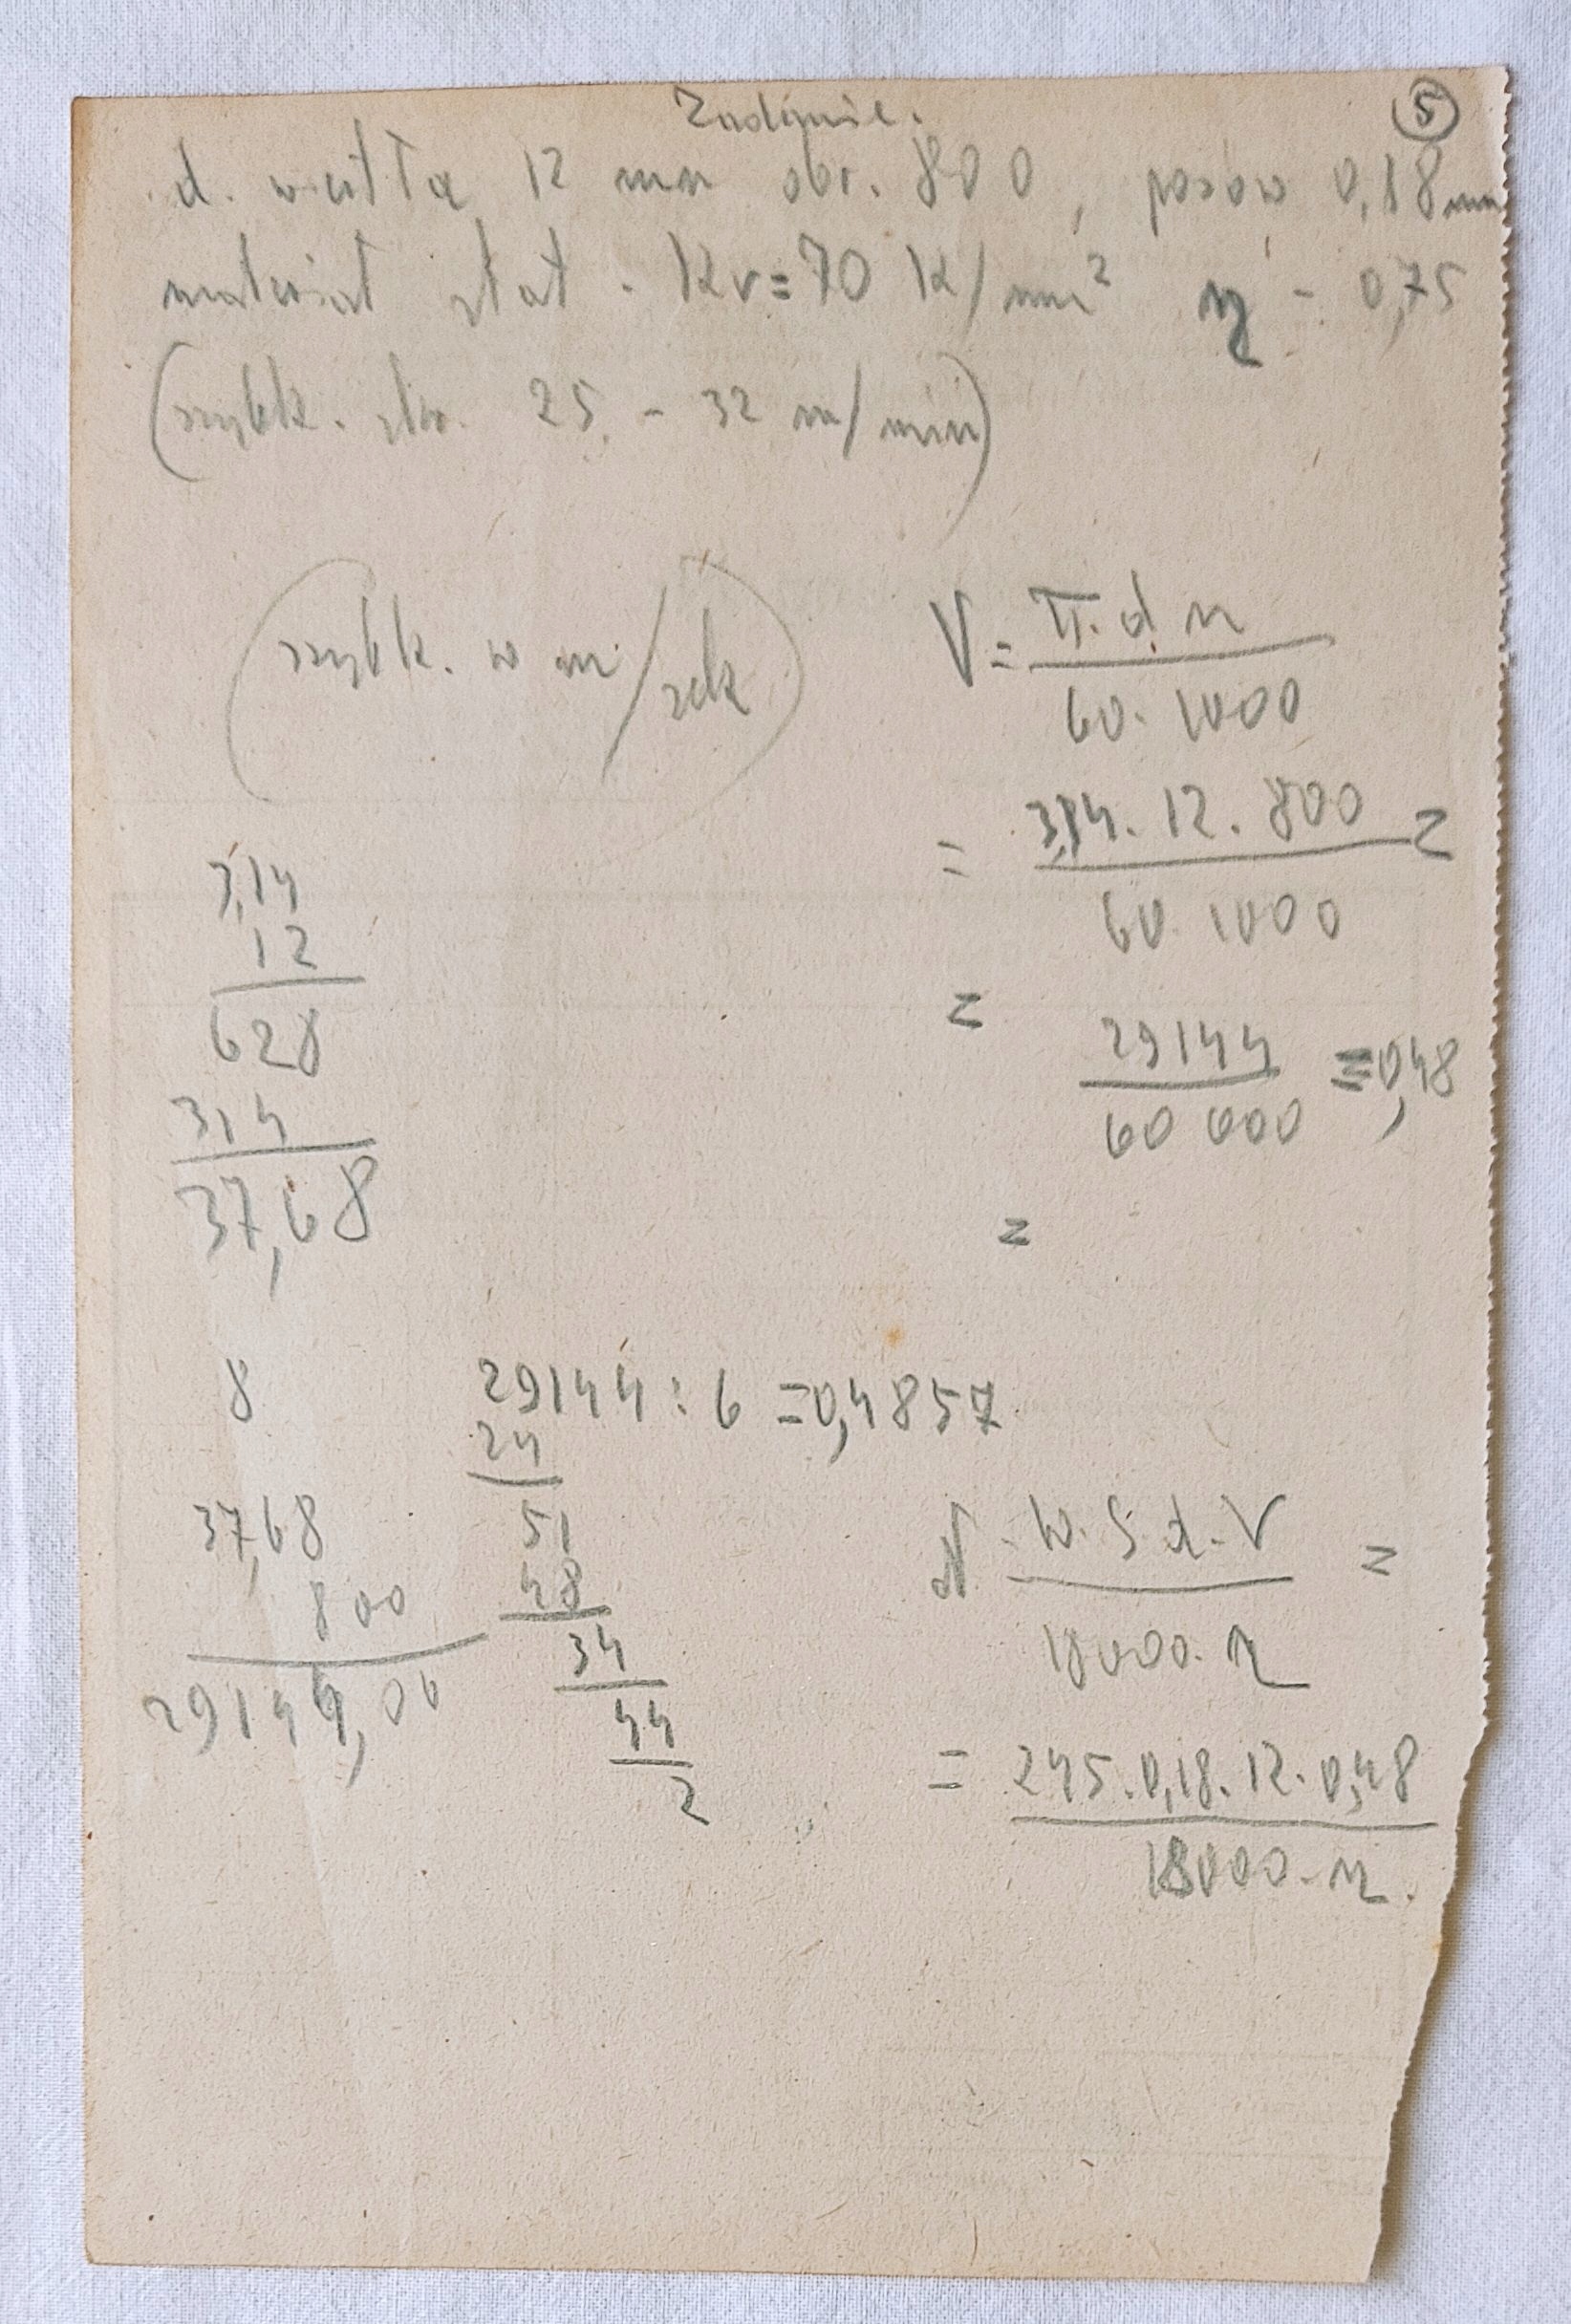 Zadanie. 5
d. wiertła 12 mm obr. 800, posów 0,18 mm
materiał stal. Kr=70 K/mm² η - 0,75
(szybk. skr. 25 - 32 m/min)
(szybk. w m/sek)
V = π.d n
60.1000
= 3,14.12.800 =
60.1000
= 29144 = 0,48
60 000
=
3,14
12
628
314
37,68
8
37,68
800
29144,00
29144 : 6 = 0,4857
24
51
48
34
44
2
N. W. S d. V =
18000. η
= 245.0,18.12.0,48
18000. η.